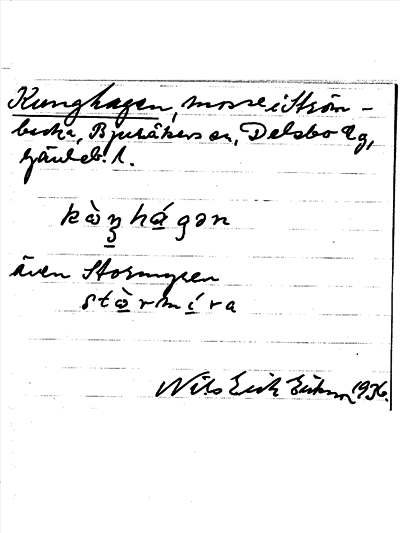 Kunghagen, mosse i Ström-
backa, Bjuråkers sn, Delsbo tg,
Gävleb. l.
kàŋhágən
även Stormyren
stàrmíra
Nils Erik Erikson 1936.